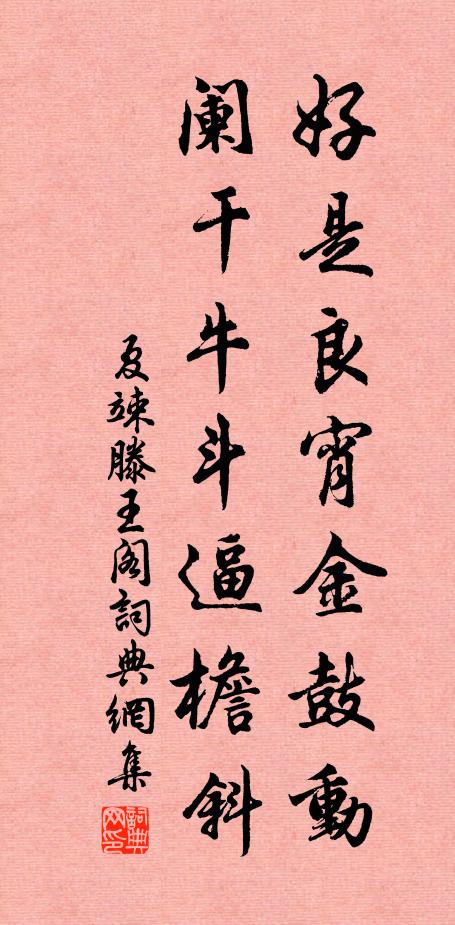 好是良宵金鼓動
闌干牛斗逼檐斜
夏竦滕王阁詞典網集
詞典网印